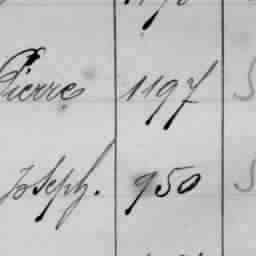 Pierre 1197
Joseph. 950